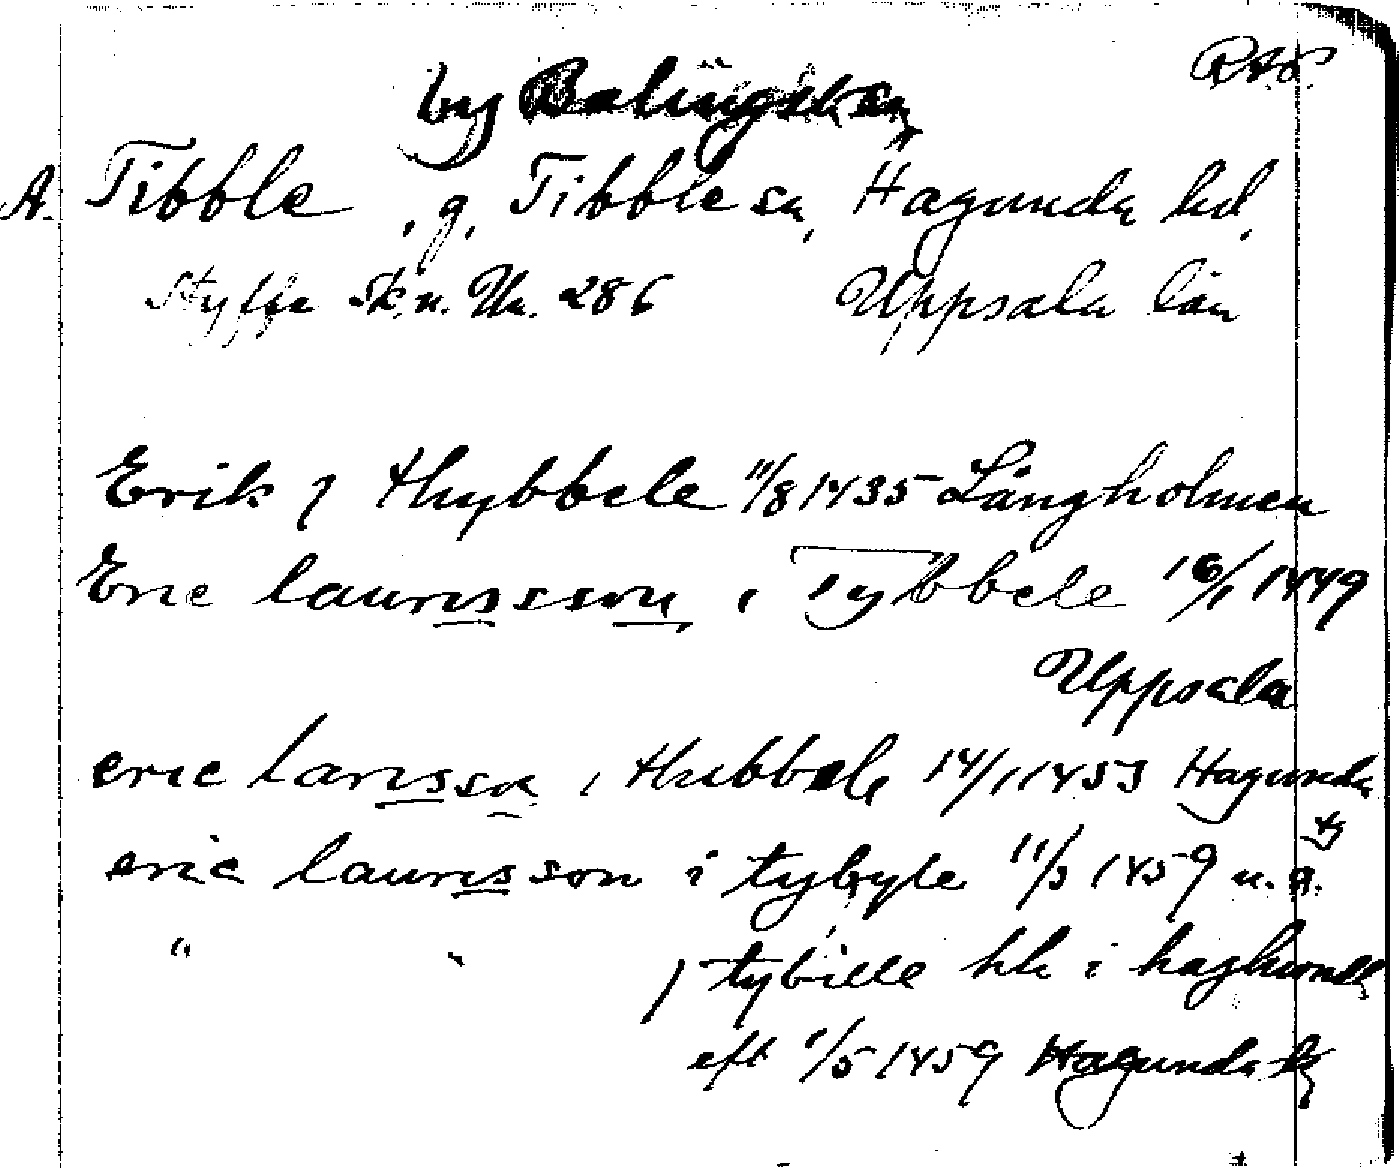 RAP.
by Balingsta sn
A. Tibble, g. Tibble sn, Hagunda hd,
Styffe Sk. u. Un. 286 Uppsala län
Erik j thybbele 11/8 1435 Långholmen
Eric laurissson i Tybbele 16/1 1449
Uppsala
eric larissson i thibbele 14/1 1453 Hagunda
tg
eric laurisson i tybyle 11/5 1459 u. A.
" " j tybille hh i haghund
eft 1/5 1459 Hagunda tg